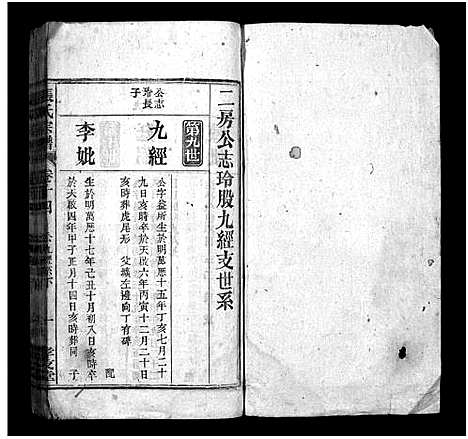 二房公志玲股九經支世系
第九世
公志
玲長
子
九經
公字益所生於明萬曆十五年丁亥七月二十
九日亥時卒於天啟六年丙寅十二月二十日
亥時葬虎尾形 父墳左邊向丁有碑
配
李妣
生於明萬曆十七年己丑十月初八日亥時卒
於天啟四年甲子正月十四日亥時葬同
子
張氏宗譜
卷十四
一
孝友堂